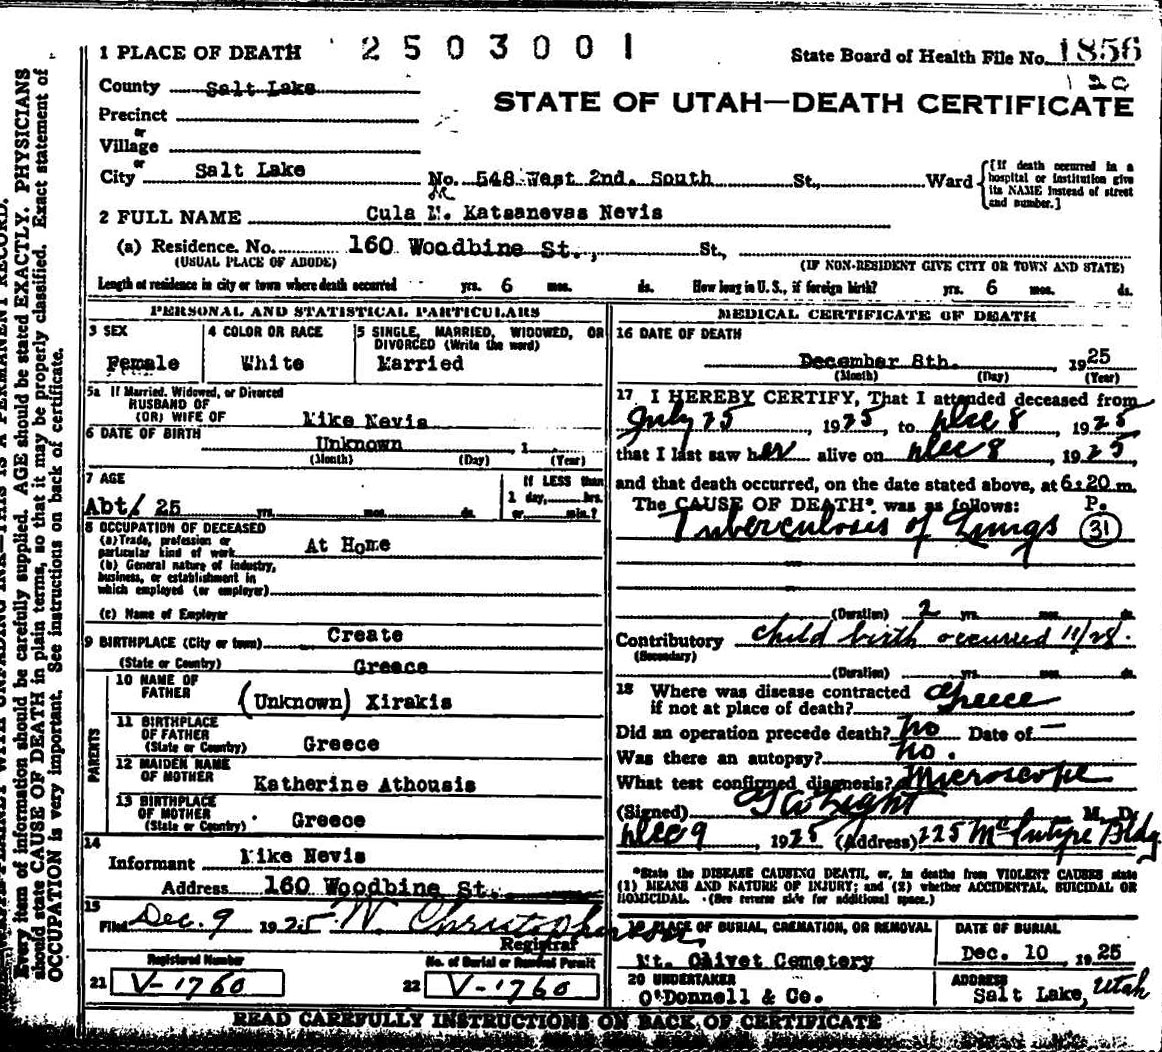 1 PLACE OF DEATH 2503001 State Board of Health File No. 1856
120
County Salt Lake
STATE OF UTAH—DEATH CERTIFICATE
Precinct
or
Village
or
City Salt Lake No. 548 West 2nd. South St., Ward
[If death occurred in a hospital or institution give its NAME instead of street and number.]
2 FULL NAME Cula M. Katsanevas Nevis
(a) Residence. No. 160 Woodbine St., St.,
(USUAL PLACE OF ABODE) (IF NON-RESIDENT GIVE CITY OR TOWN AND STATE)
Length of residence in city or town where death occurred yrs. 6 mos. ds. How long in U. S., if foreign birth? yrs. 6 mos. ds.
PERSONAL AND STATISTICAL PARTICULARS
3 SEX
Female
4 COLOR OR RACE
White
5 SINGLE, MARRIED, WIDOWED, OR
DIVORCED (Write the word)
Married
5a If Married, Widowed, or Divorced
HUSBAND OF
(OR) WIFE OF Mike Nevis
6 DATE OF BIRTH Unknown , 1
(Month) (Day) (Year)
7 AGE
Abt/ 25 yrs. mos. ds.
If LESS than
1 day, hrs.
or min.?
8 OCCUPATION OF DECEASED
(a) Trade, profession or
particular kind of work At Home
(b) General nature of industry,
business, or establishment in
which employed (or employer)
(c) Name of Employer
9 BIRTHPLACE (City or town) Create
(State or Country) Greece
PARENTS
10 NAME OF
FATHER (Unknown) Xirakis
11 BIRTHPLACE
OF FATHER
(State or Country) Greece
12 MAIDEN NAME
OF MOTHER Katherine Athousis
13 BIRTHPLACE
OF MOTHER
(State or Country) Greece
14
Informant Mike Nevis
Address 160 Woodbine St.
15
Filed Dec. 9 1925 W. Christopherson
Registrar
Registered Number
21 V-1760
No. of Burial or Removal Permit
22 V-1760
MEDICAL CERTIFICATE OF DEATH
16 DATE OF DEATH
December 8th. 1925
(Month) (Day) (Year)
17 I HEREBY CERTIFY, That I attended deceased from
July 25, 1925, to Dec 8, 1925
that I last saw her alive on Dec 8, 1925,
and that death occurred, on the date stated above, at 6:20 m.
P.
The CAUSE OF DEATH* was as follows:
Tuberculosis of Lungs 31
(Duration) 2 yrs. mos. ds.
Contributory child birth occurred 11/28.
(Secondary)
(Duration) yrs. mos. ds.
18 Where was disease contracted
if not at place of death? Greece
Did an operation precede death? No Date of —
Was there an autopsy? no.
What test confirmed diagnosis? Microscope
(Signed) M. D.
Dec 9, 1925 (Address) 225 McIntyre Bldg
*State the DISEASE CAUSING DEATH, or, in deaths from VIOLENT CAUSES state
(1) MEANS AND NATURE OF INJURY; and (2) whether ACCIDENTAL, SUICIDAL OR
HOMICIDAL. (See reverse side for additional space.)
19 PLACE OF BURIAL, CREMATION, OR REMOVAL
Mt. Olivet Cemetery
DATE OF BURIAL
Dec. 10 1925
20 UNDERTAKER
O'Donnell & Co.
ADDRESS
Salt Lake, Utah
READ CAREFULLY INSTRUCTIONS ON BACK OF CERTIFICATE
THIS IS A PERMANENT RECORD.
Every item of information should be carefully supplied. AGE should be stated EXACTLY. PHYSICIANS
should state CAUSE OF DEATH in plain terms, so that it may be properly classified. Exact statement of
OCCUPATION is very important. See instructions on back of certificate.